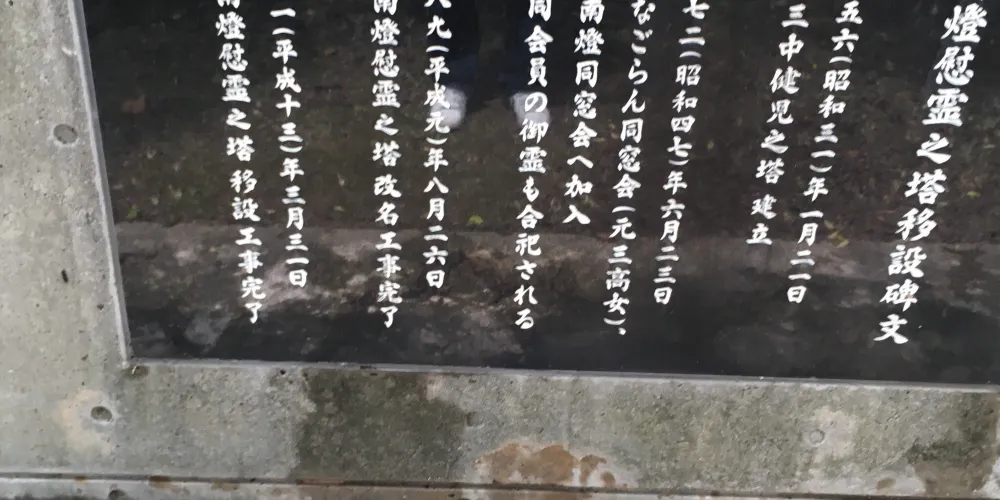 燈慰霊之塔移設碑文
五六(昭和三一)年一月二一日
三中健児之塔 建立
七二(昭和四七)年六月二三日
なごらん同窓会(元三高女)、
南燈同窓会へ加入
同会員の御霊も合祀される
八九(平成元)年八月二六日
南燈慰霊之塔 改名工事完了
一(平成十三)年三月三一日
南燈慰霊之塔 移設工事完了